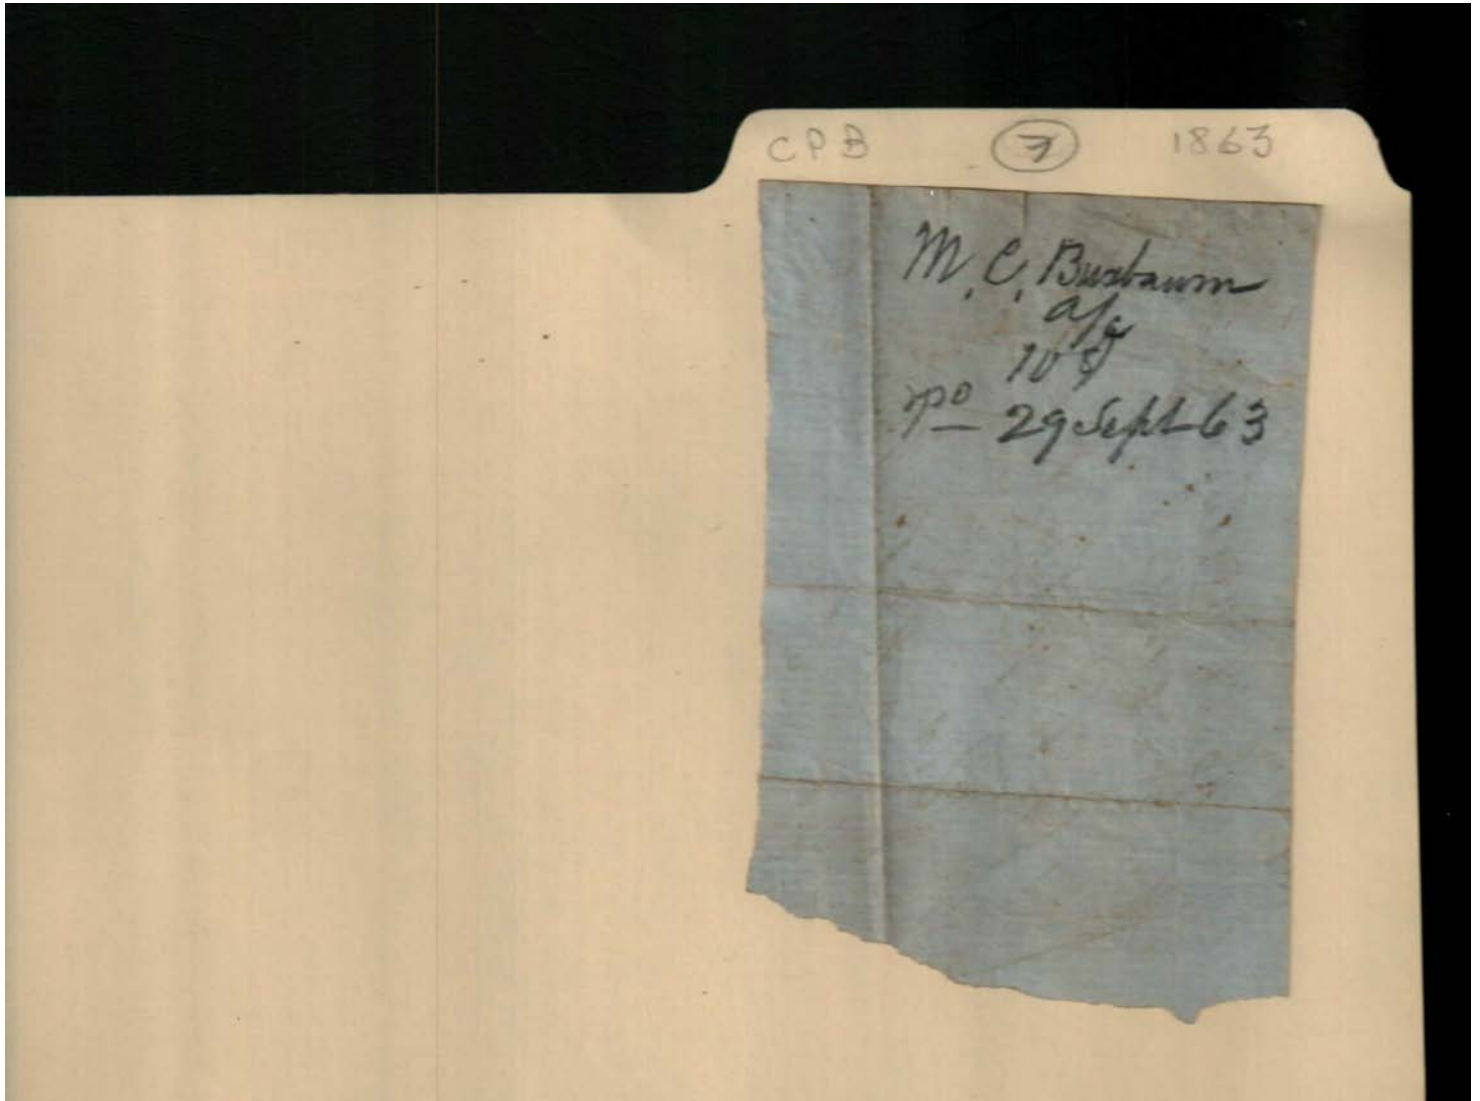 CPB 7 1863
M. C. Buxbaum
a/c
10
29 Sept 63